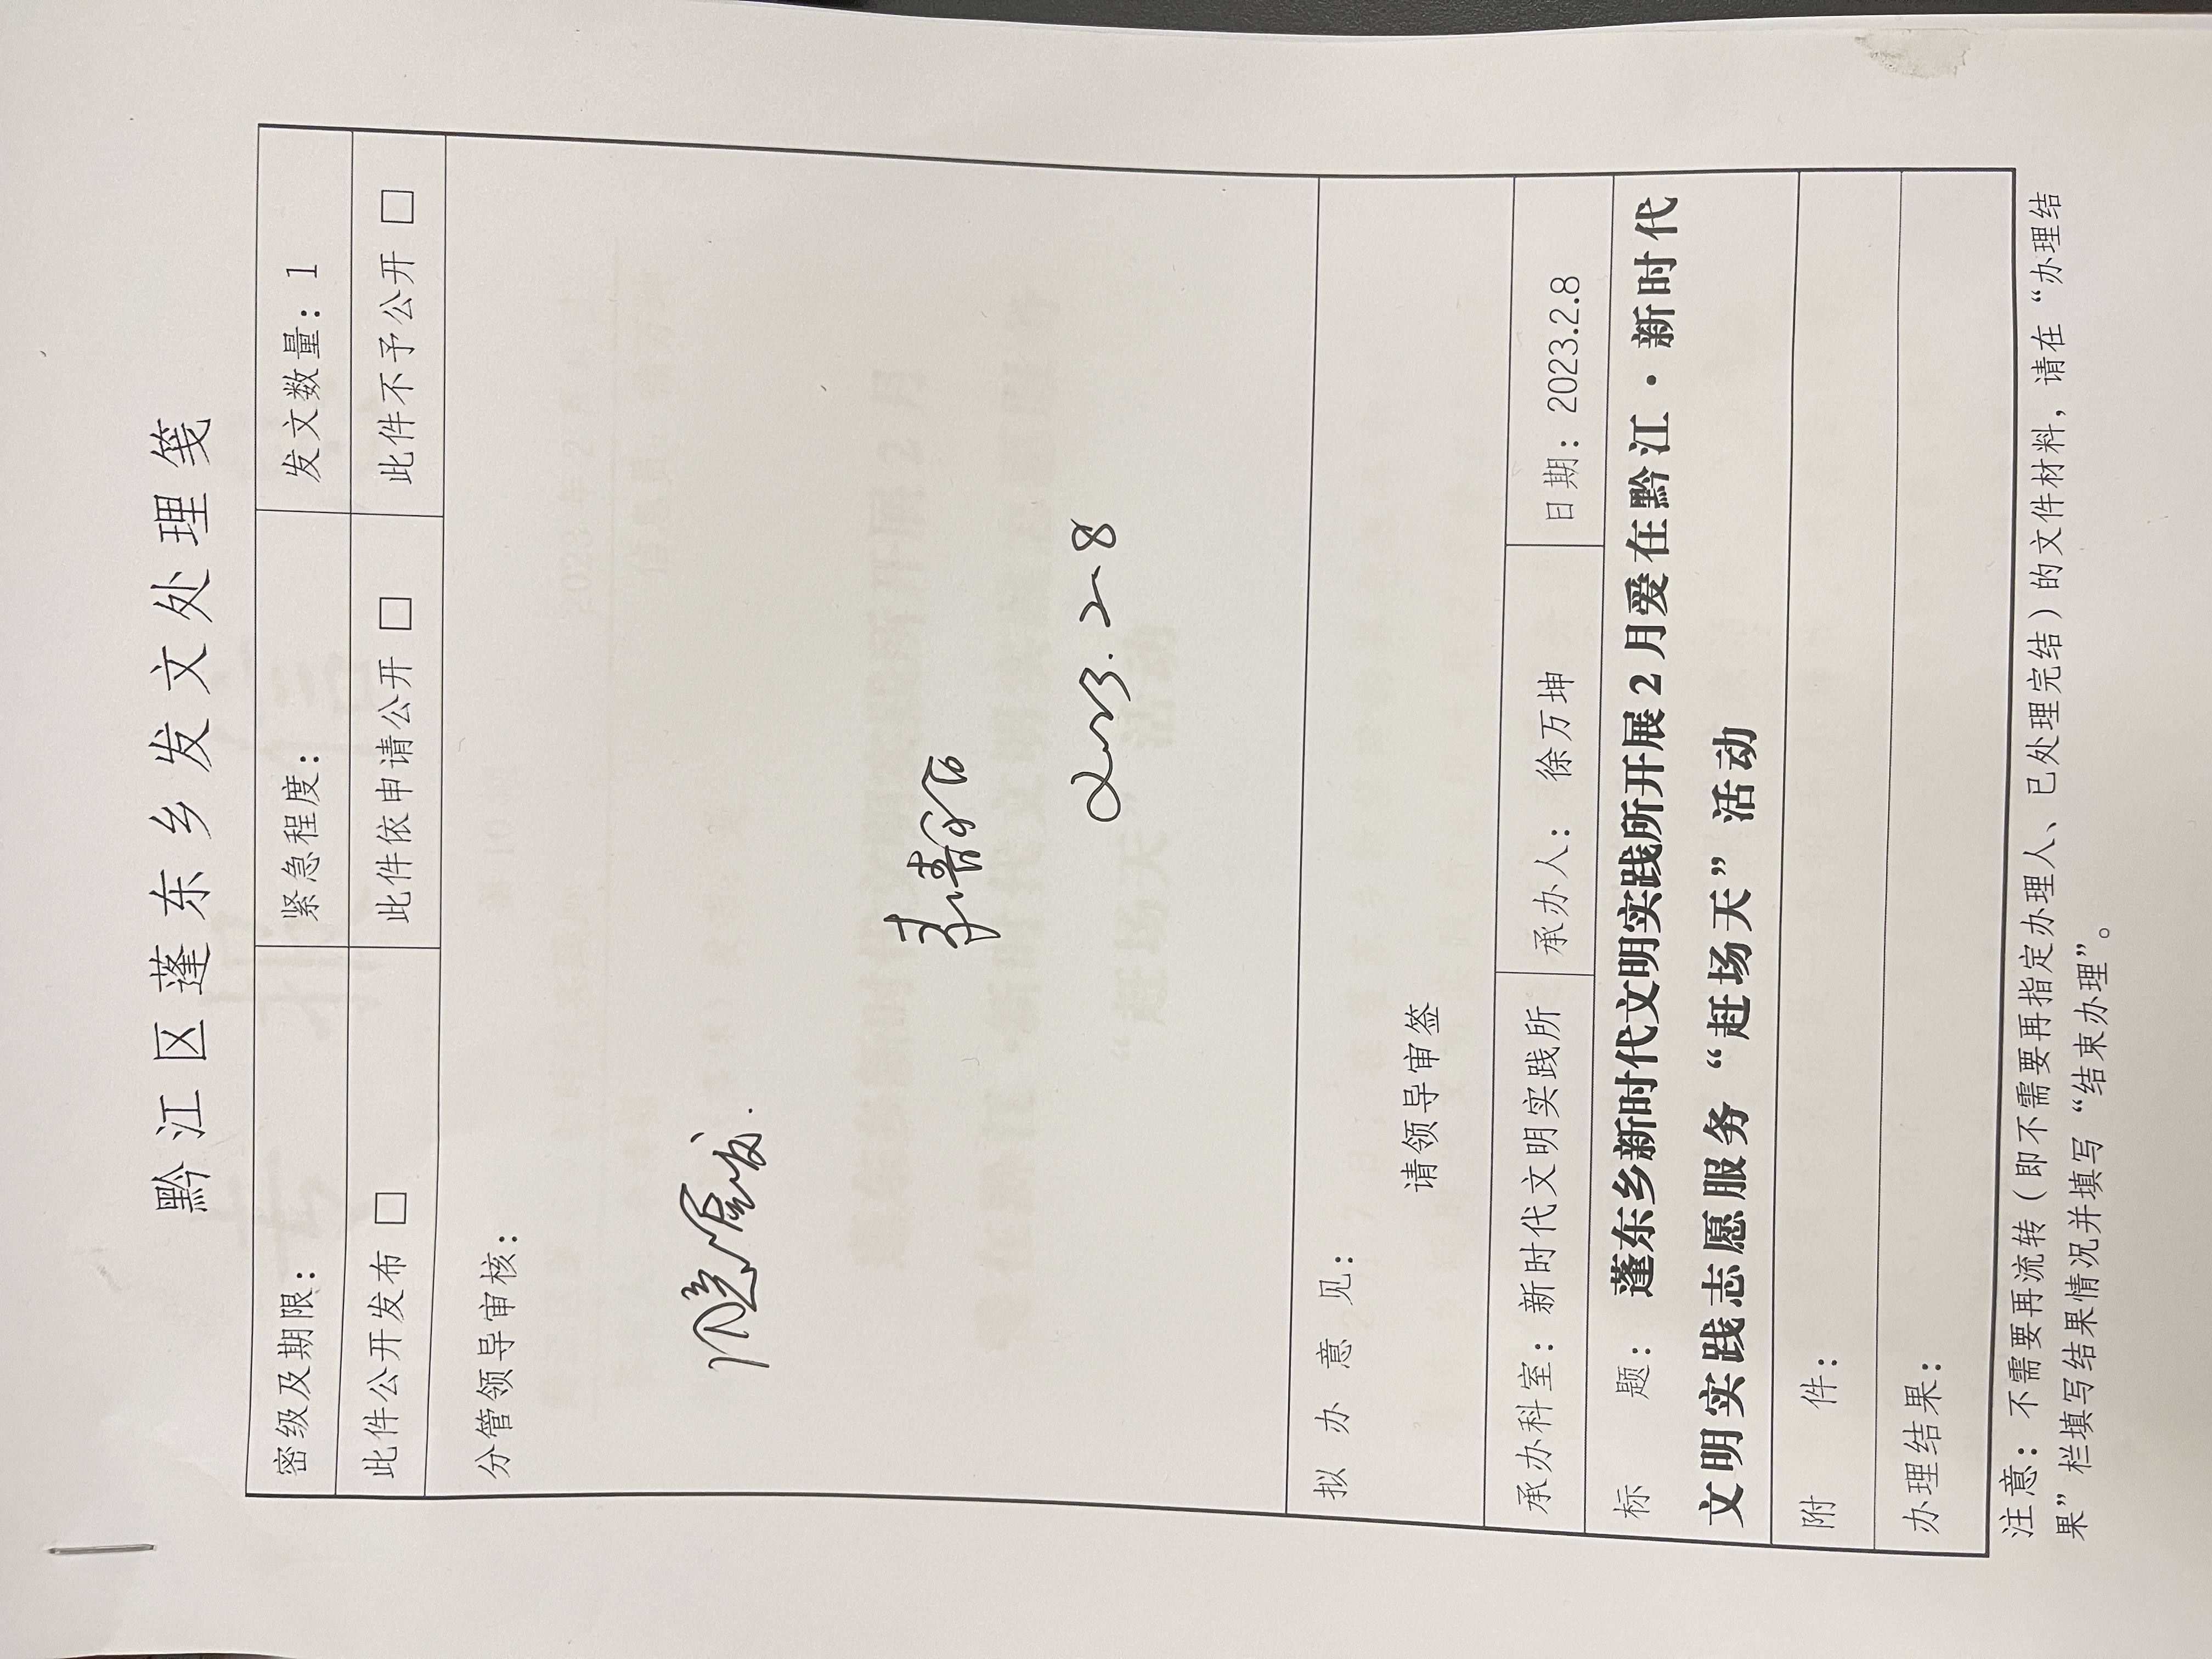 黔江区蓬东乡发文处理笺
密级及期限： 紧急程度： 发文数量：1
此件公开发布 □ 此件依申请公开 □ 此件不予公开 □
分管领导审核：
同意签发.
2023.2.8
拟办意见：
请领导审签
承办科室：新时代文明实践所 承办人： 徐万坤 日期：2023.2.8
标 题： 蓬东乡新时代文明实践所开展2月爱在黔江·新时代
文明实践志愿服务“赶场天”活动
附 件：
办理结果：
注意：不需要再流转（即不需要再指定办理人、已处理完结）的文件材料，请在“办理结
果”栏填写结果情况并填写“结束办理”。